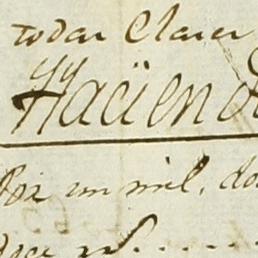 todas Clases
yy
Haciend
Por un mil, do
doce rs.....